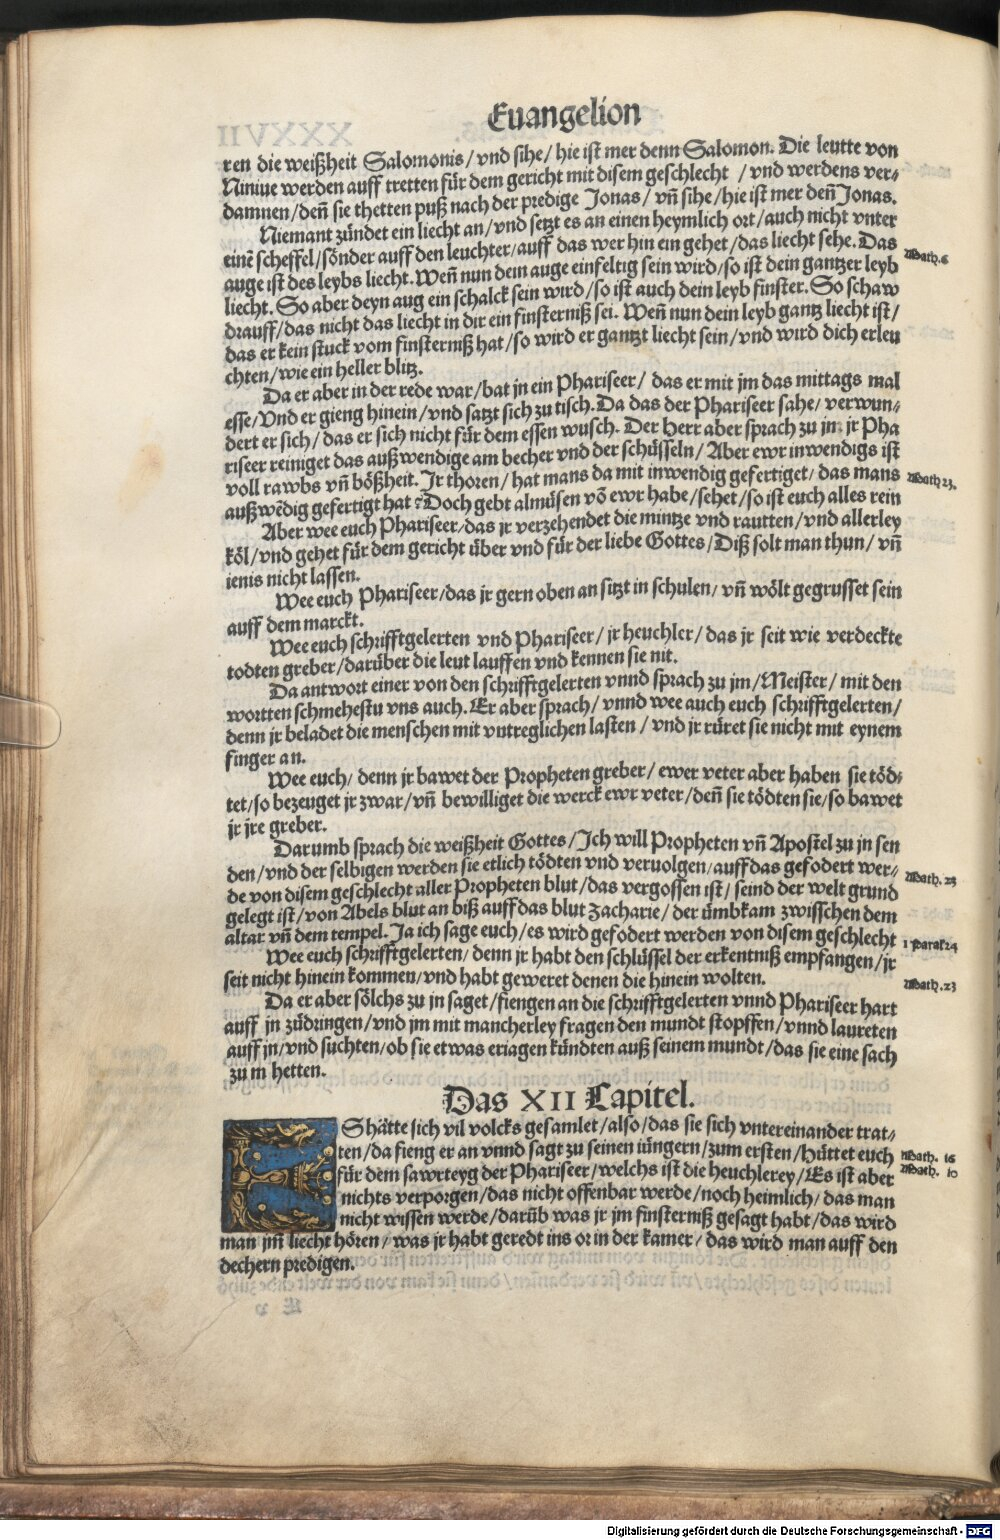 Euangelion
ren die weißheit Salomonis/vnd sihe/hie ist mer denn Salomon. Die leutte von
Niniue werden auff tretten für dem gericht mit disem geschlecht /vnd werdens ver⸗
damnen/deñ sie thetten puß nach der predige Jonas/ vñ sihe/hie ist mer deñ Jonas.
Niemant zündet ein liecht an/vnd setzt es an einen heymlich ort/auch nicht vnter
einē scheffel/sönder auff den leuchter/auff das wer hin ein gehet/das liecht sehe. Das
Math.6
auge ist des leybs liecht. Weñ nun dein auge einfeltig sein wird/so ist dein gantzer leyb
liecht. So aber deyn aug ein schalck sein wird/so ist auch dein leyb finster. So schaw
drauff/das nicht das liecht in dir ein finsterniß sei. Weñ nun dein leyb gantz liecht ist/
das er kein stuck vom finsterniß hat/so wird er gantzt liecht sein/vnd wird dich erleu
chten/wie ein heller blitz.
Da er aber in der rede war/bat jn ein Phariseer/ das er mit jm das mittags mal
esse/Vnd er gieng hinein/vnd satzt sich zu tisch. Da das der Phariseer sahe/ verwun⸗
dert er sich/das er sich nicht für dem essen wusch. Der Herr aber sprach zu jm: jr Pha
riseer reiniget das außwendige am becher vnd der schüsseln/ Aber ewr inwendigs ist
voll rawbs vñ bößheit. Jr thoren/hat mans da mit inwendig gefertiget/das mans
Math 23.
außwēdig gefertigt hat? Doch gebt almüsen vō ewr habe/sehet/so ist euch alles rein
Aber wee euch Phariseer/das jr verzehendet die mintze vnd rautten/vnd allerley
köl/vnd gehet für dem gericht über vnd für der liebe Gottes/Diß solt man thun/ vñ
ienis nicht lassen.
Wee euch Phariseer/das jr gern oben an sitzt in schulen/ vñ wölt gegrusset sein
auff dem marckt.
Wee euch schrifftgelerten vnd Phariseer/jr heuchler/das jr seit wie verdeckte
todten greber/darüber die leut lauffen vnd kennen sie nit.
Da antwort einer von den schrifftgelerten vnnd sprach zu jm/Meister/ mit den
wortten schmehestu vns auch. Er aber sprach/ vnnd wee auch euch schrifftgelerten/
denn jr beladet die menschen mit vntreglichen lasten/ vnd jr rüret sie nicht mit eynem
finger an.
Wee euch/ denn jr bawet der Propheten greber/ ewer veter aber haben sie töd⸗
tet/so bezeuget jr zwar/vñ bewilliget die werck ewr veter/deñ sie tödten sie/so bawet
jr jre greber.
Darumb sprach die weißheit Gottes/Jch will Propheten vñ Apostel zu jn sen
den/vnd der selbigen werden sie etlich tödten vnd veruolgen/auff das gefodert wer⸗
Math. 23
de von disem geschlecht aller Propheten blut/das vergossen ist/seind der welt grund
gelegt ist/von Abels blut an biß auff das blut Zacharie/der ümbkam zwisschen dem
altar vñ dem tempel. Ja ich sage euch/es wird gefodert werden von disem geschlecht
1 Paral 24
Wee euch schrifftgelerten/denn jr habt den schlüssel der erkentniß empfangen/jr
seit nicht hinein kommen/vnd habt geweret denen die hinein wolten.
Math.23
Da er aber sölchs zu jn saget/fiengen an die schrifftgelerten vnnd Phariseer hart
auff jn züdringen/vnd jm mit mancherley fragen den mundt stopffen/vnnd laureten
auff jn/vnd suchten/ob sie etwas eriagen kündten auß seinem mundt/das sie eine sach
zu m hetten.
Das XII Capitel.
Shätte sich vil volcks gesamlet/also/das sie sich vntereinander trat⸗
ten/da fieng er an vnnd sagt zu seinen iüngern/zum ersten/Hüttet euch
Math. 16
für dem sawrteyg der Phariseer/welchs ist die heuchlerey/Es ist aber
Math. 10
nichts verporgen/das nicht offenbar werde/noch heimlich/das man
nicht wissen werde/darüb was jr jm finsterniß gesagt habt/das wird
man jm liecht hören/was jr habt geredt ins or in der kamer/das wird man auff den
dechern predigen.
Digitalisierung gefördert durch die Deutsche Forschungsgemeinschaft - DFG